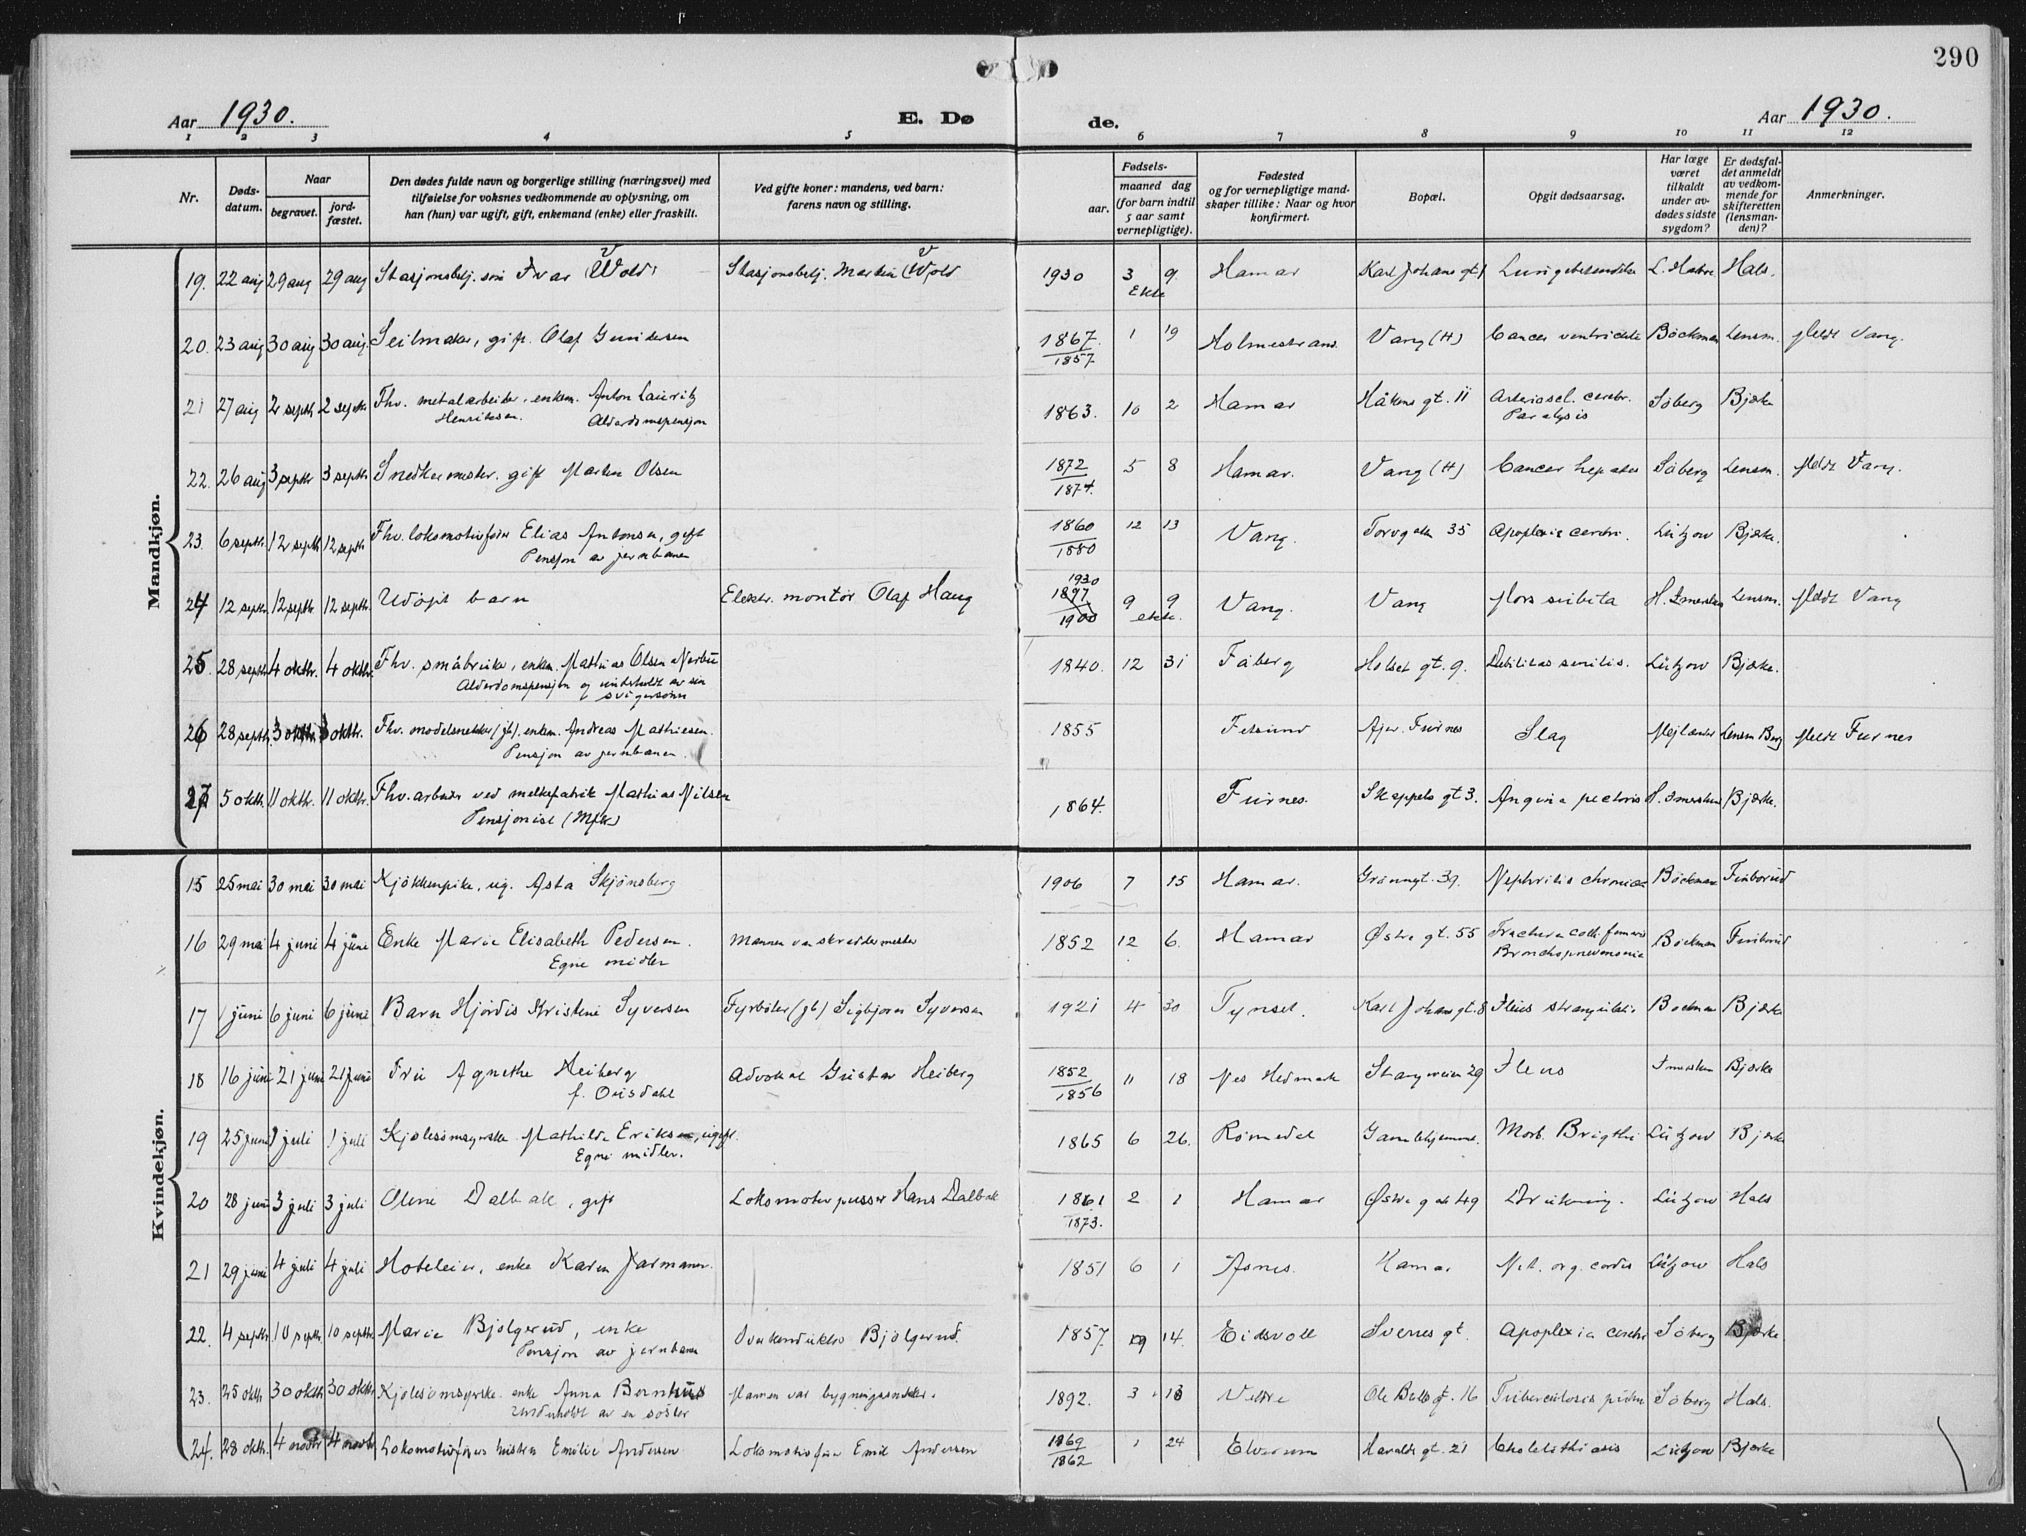 290
Aar 1930. E. Dø de. Aar 1930.
1 2 3 4 5 6 7 8 9 10 11 12
Nr. Døds-datum. Naar begravet. jord-fæstet. Den dødes fulde navn og borgerlige stilling (næringsvei) med tilføielse for voksnes vedkommende av oplysning, om han (hun) var ugift, gift, enkemand (enke) eller fraskilt. Ved gifte koner: mandens, ved barn: farens navn og stilling. Fødsels- aar. maaned dag (for barn indtil 5 aar samt vernepligtige). Fødested og for vernepligtige mandskaper tillike: Naar og hvor konfirmert. Bopæl. Opgit dødsaarsag. Har læge været tilkaldt under avdødes sidste sygdom? Er dødsfaldet anmeldt av vedkommende for skifteretten (lensmanden)? Anmerkninger.
Mandkjøn.
19. 22 aug 29 aug 29 aug Stasjonsbetj. søn Ivar Wold Stasjonsbetj. Martin Wold 1930 3 9. Hamar Karl Johans gt Hals.
Ekte
20. 23 aug 30 aug 30 aug. Seilmaker, gift. Olaf Gundersen 1867. 1 19 Holmestrand. Vang (H) Cancer ventriculi Bøckman Lensm. Meldt Vang.
1857.
21 27 aug 2 septbr 2 septbr Fhv. metalarbeider, enkem. Anton Lauritz 1863. 10 2 Hamar Håkons gt. 11 Arterioscl. cerebr. Söberg Bjerke
Henriksen. Alderdomspensjon Paralysis
22. 26 aug 3 septbr 3 septbr Snedkermester. gift Martin Olsen 1872 5 8 Hamar. Vang (H) Cancer hepatis Söberg Lensm. Meldt Vang.
1874.
23. 6 septbr. 12 septbr 12 septbr Fhv. lokomotivfører Elias Antonsen, gift 1860 12 13 Vang. Torvgaten 35 Apoplexia cerebri. Lützow Bjerke.
Pensjon av jernbanen 1880
24 12 septbr. 12 septbr 12 septbr. Udöpt barn Elektr. montör Olaf Haug 1930 9 9 Vang. Vang Mors subita Lensm. Meldt Vang
1897 ekte.
1900
25 28 septbr 4 oktbr. 4 oktbr. Fhv. småbruker, enkem. Mathias Olsen Nerbu 1840. 12 31 Fåberg Holset gt. 9. Debilitas senilis. Lützow Bjerke.
Alderdomspensjon og underholdt av sin
svigersönn
26 28 septbr. 3 oktbr. 3 oktbr. Fhv. modelsnekker (jb), enkem. Andreas Mathiesen. 1855 Fetsund Ajer. Furnes Slag Mejlænder Lensm Berg Meldt Furnes
Pensjon av jernbanen.
27 5 oktbr. 11 oktbr. 11 oktbr. Fhv. arbeider ved melkefabrik Mathias Nilsen 1864. Furnes. Skappels gt 3. Angina pectoris Bjerke.
Pensjonist
Kvindekjøn.
15 25 mai 30 mai 30 mai Kjökkenpike, ug. Asta Skjönsberg 1906 7 15 Hamar. Grønnegt. 39. Nephritis chronica Böckman Finborud
16 29 mai 4 juni 4 juni Enke Marie Elisabeth Pedersen. Mannen var skreddermester 1852 12 6. Hamar Østre gt. 55 Fractura coll. femoris Böckman Finborud
Egne midler Bronchopneumonia
17 1 juni 6 juni 6 juni Barn Hjördis Kristine Syversen Fyrböter (jb) Sigbjörn Syversen 1921 4 30 Tynset. Karl Johans gt. 8 Ileus Böckman Bjerke
18 16 juni 21 juni 21 juni Fru Agnethe Heiberg Advokat Gustav Heiberg 1852 11 18 Nes Hedmark Stangeveien 29 Ileus Bjerke
f. Ousdahl 1856
19 25 juni 1 juli 1 juli Kjolesömmerske Mathilde Eriksen, ugift. 1865 6 26. Romedal Gamlehjemmet. Morb. Brigthi Lützow Bjerke
Egne midler.
20 28 juni 3 juli 3 juli Oline Dalbak, gift Lokomotivpusser Hans Dalbak 1861 2 1 Hamar Østre gate 49 Drukning. Lützow Hals
1873.
21 29 juni 4 juli 4 juli Hoteleier, enke Karen Jarmann. 1851 6 1 Åsnes. Hamar Vit. org. cordis Lützow Hals
22. 4 septbr 10 septbr. 10 septbr Marie Bjölgerud, enke Overkonduktör Bjölgerud. 1857. 9 14. Eidsvoll Svenes gt. Apoplexia cerebri Söberg Bjerke
Pensjon av jernbanen
23. 25 oktbr. 30 oktbr. 30 oktbr Kjolesömmerske. enke Anna Bernhus Mannen var bygningssnekker. 1892. 3 13 Ole Bulls gt. 16 Tuberculosis pulm Söberg Hals.
Underholdt av en söster
24. 28 oktbr. 4 novbr 4 novbr Lokomotivførers hustru Emilie Andersen Lokomotivfører Emil Andersen 1869 1 24 Elverum Haralds gt. 21 Cholelithiasis Lützow Bjerke
1862